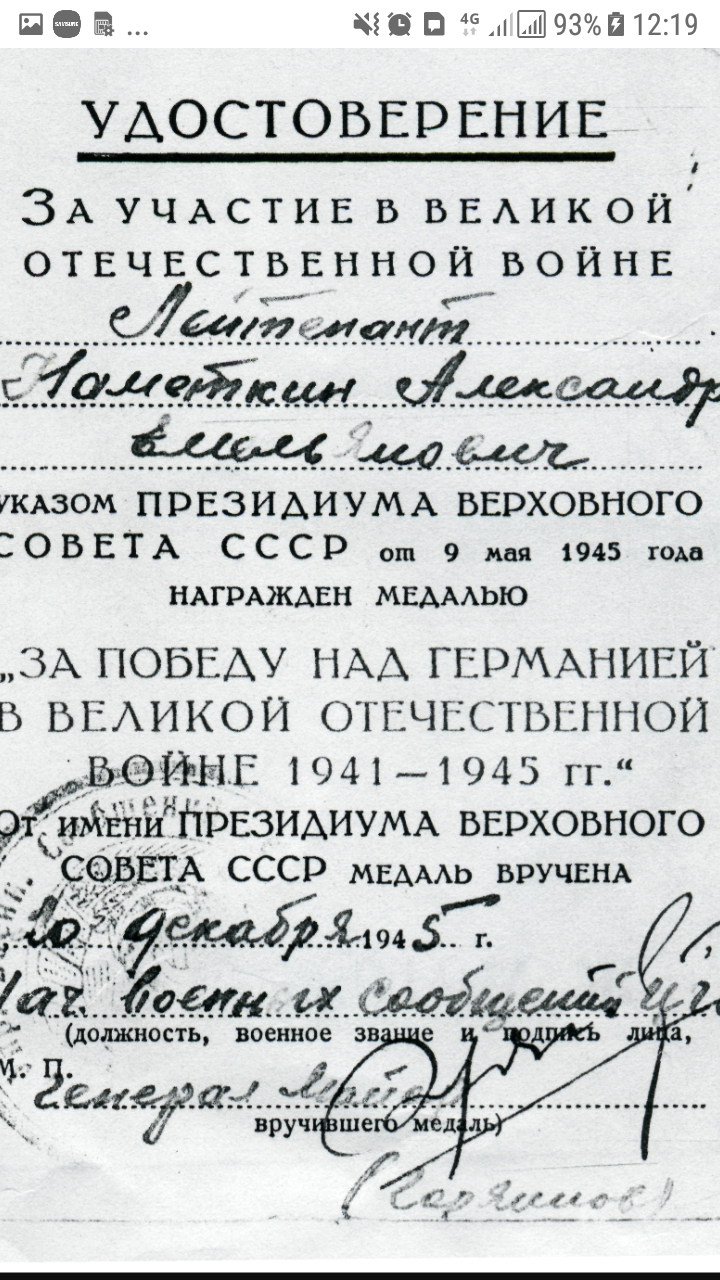 93% 12:19
УДОСТОВЕРЕНИЕ
ЗА УЧАСТИЕ В ВЕЛИКОЙ
ОТЕЧЕСТВЕННОЙ ВОЙНЕ
Лейтенант
Наметкин Александр
Емельянович
УКАЗОМ ПРЕЗИДИУМА ВЕРХОВНОГО
СОВЕТА СССР от 9 мая 1945 года
НАГРАЖДЕН МЕДАЛЬЮ
„ЗА ПОБЕДУ НАД ГЕРМАНИЕЙ
В ВЕЛИКОЙ ОТЕЧЕСТВЕННОЙ
ВОЙНЕ 1941—1945 гг.“
От ИМЕНИ ПРЕЗИДИУМА ВЕРХОВНОГО
СОВЕТА СССР МЕДАЛЬ ВРУЧЕНА
20 декабря 1945 г.
Нач. военных сообщений
(должность, военное звание и подпись лица,
М. П.
Генерал Майор
вручившего медаль)